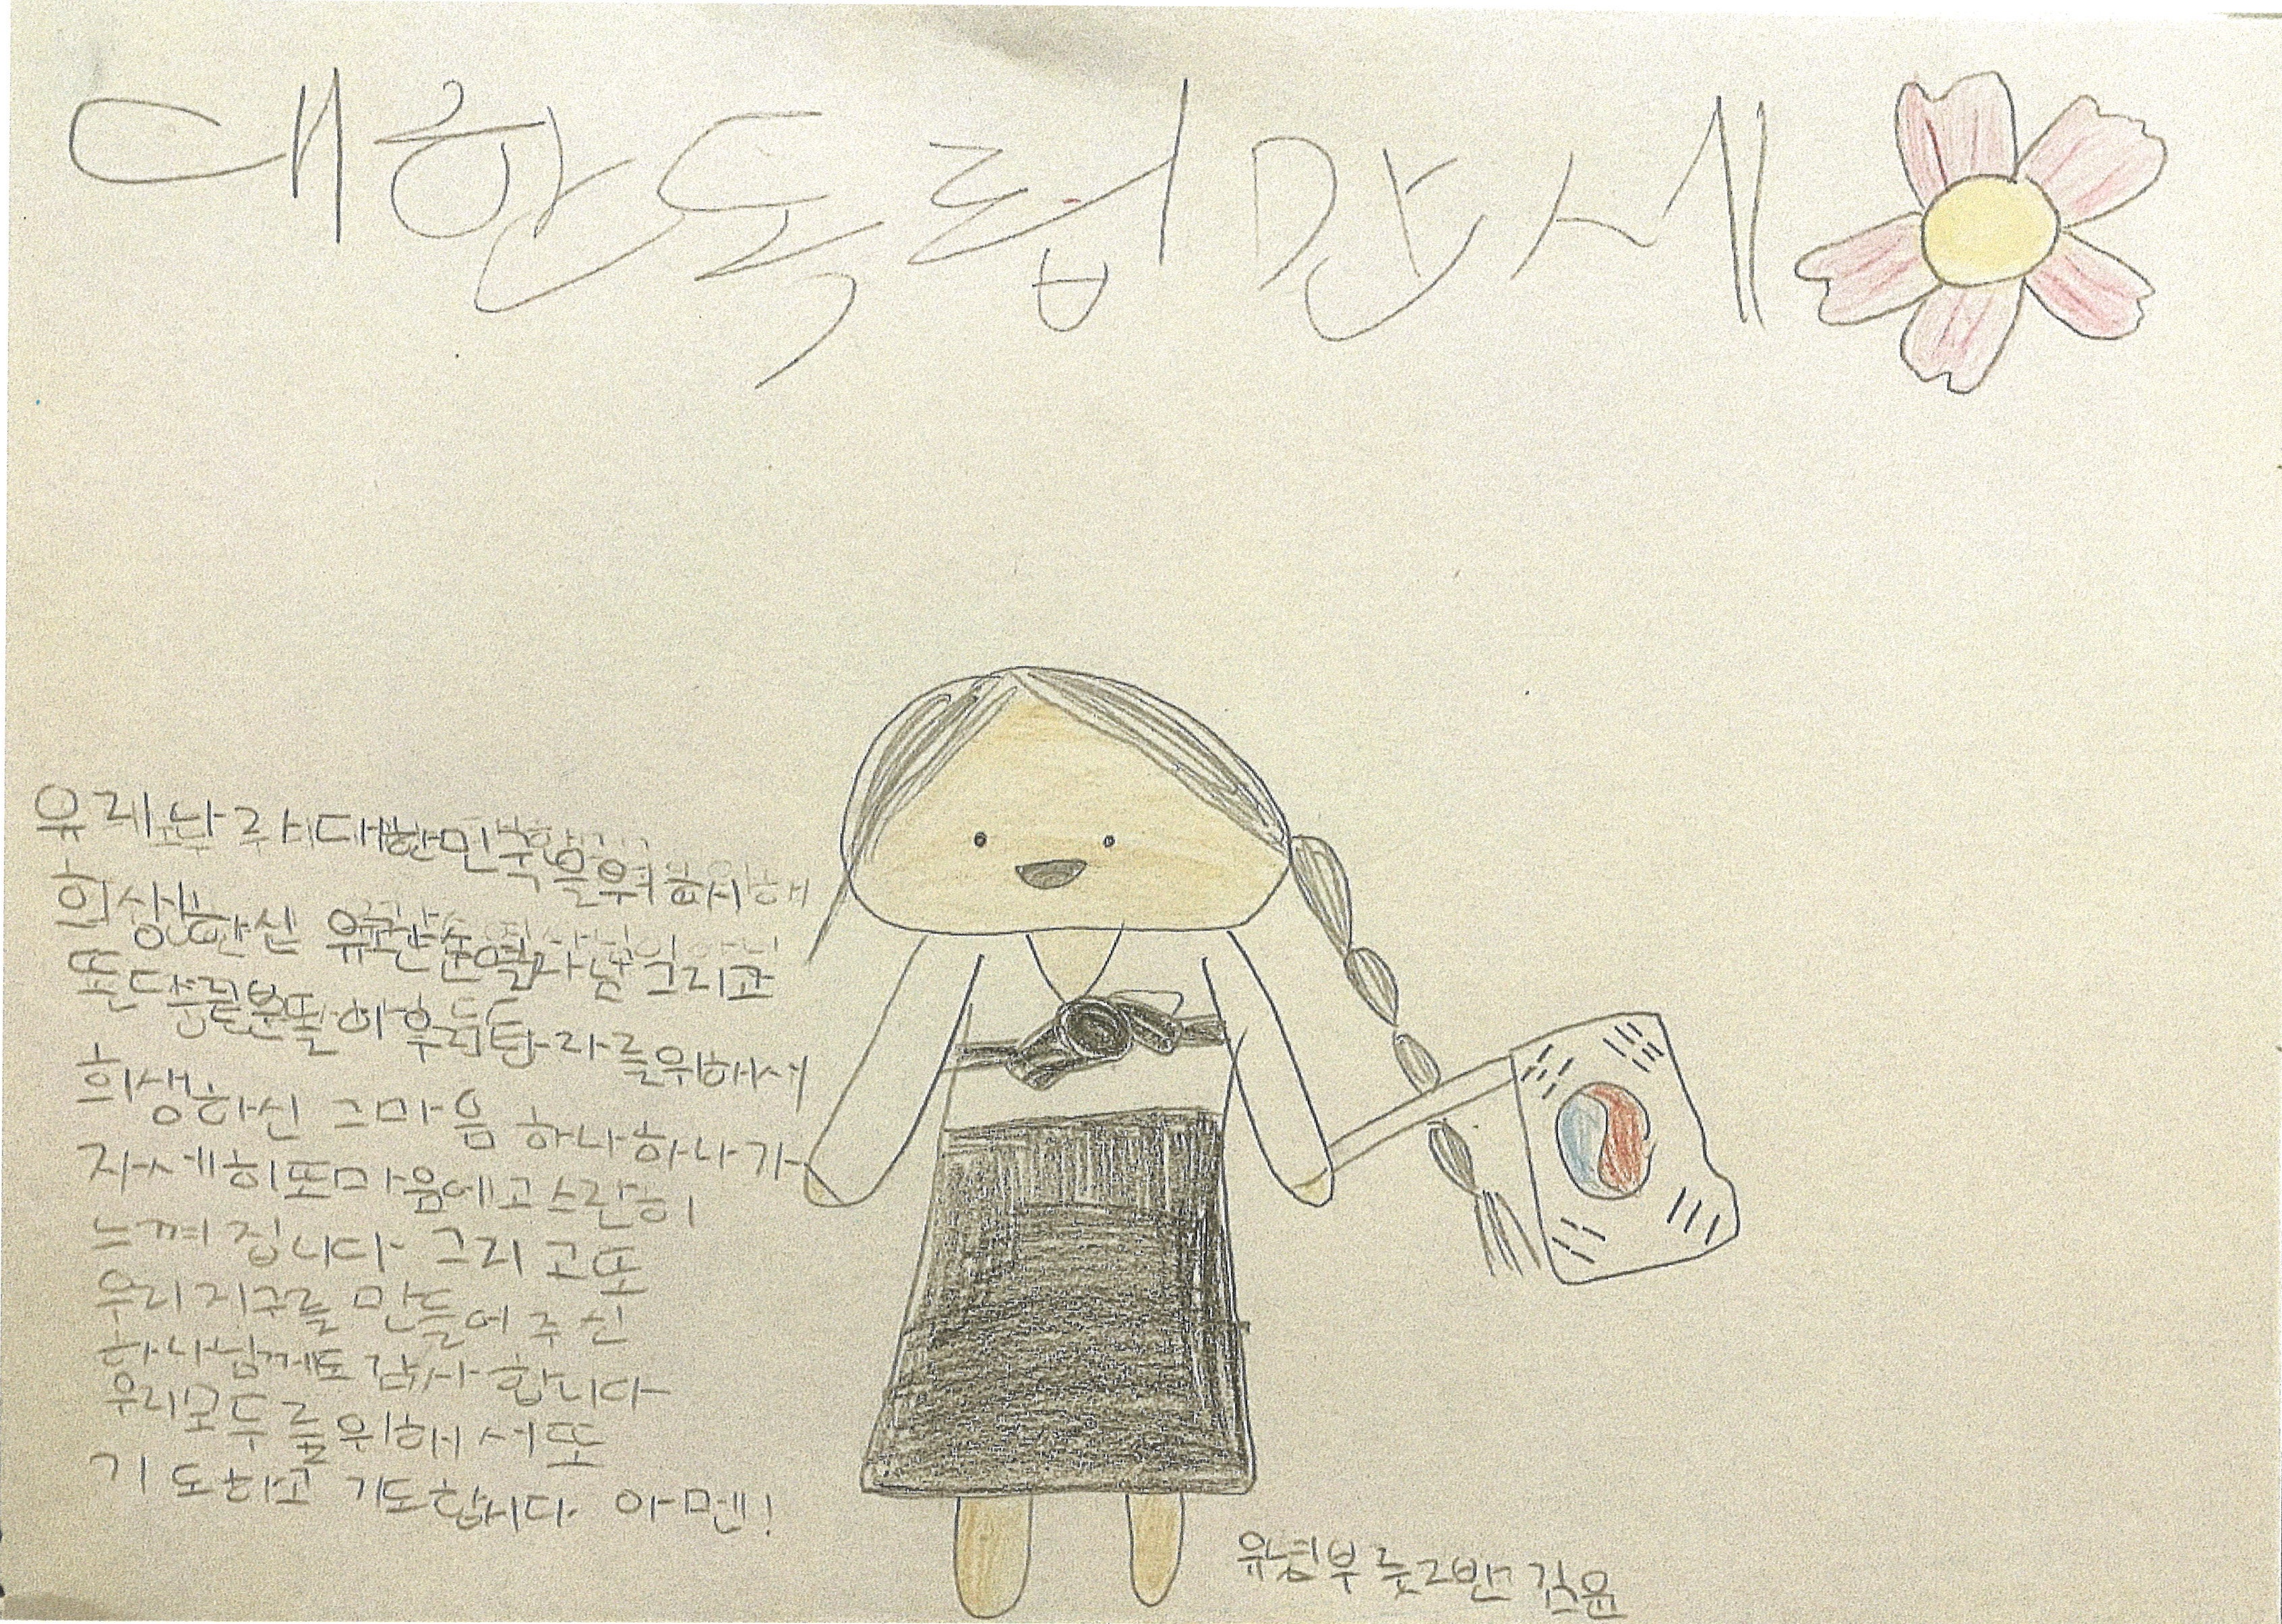 대한독립만세
유리나라대한민국을위해서
희생하신 유관순열사님 그리고
또다른분들이우리나라를위해서
희생하신 그마음 하나하나가
자세히또마음에고스란히
느껴집니다 그리고또
우리지구를 만들어주신
하나님께도감사합니다
우리모두를위해서또
기도하고 기도합니다 아멘!
유년부 반